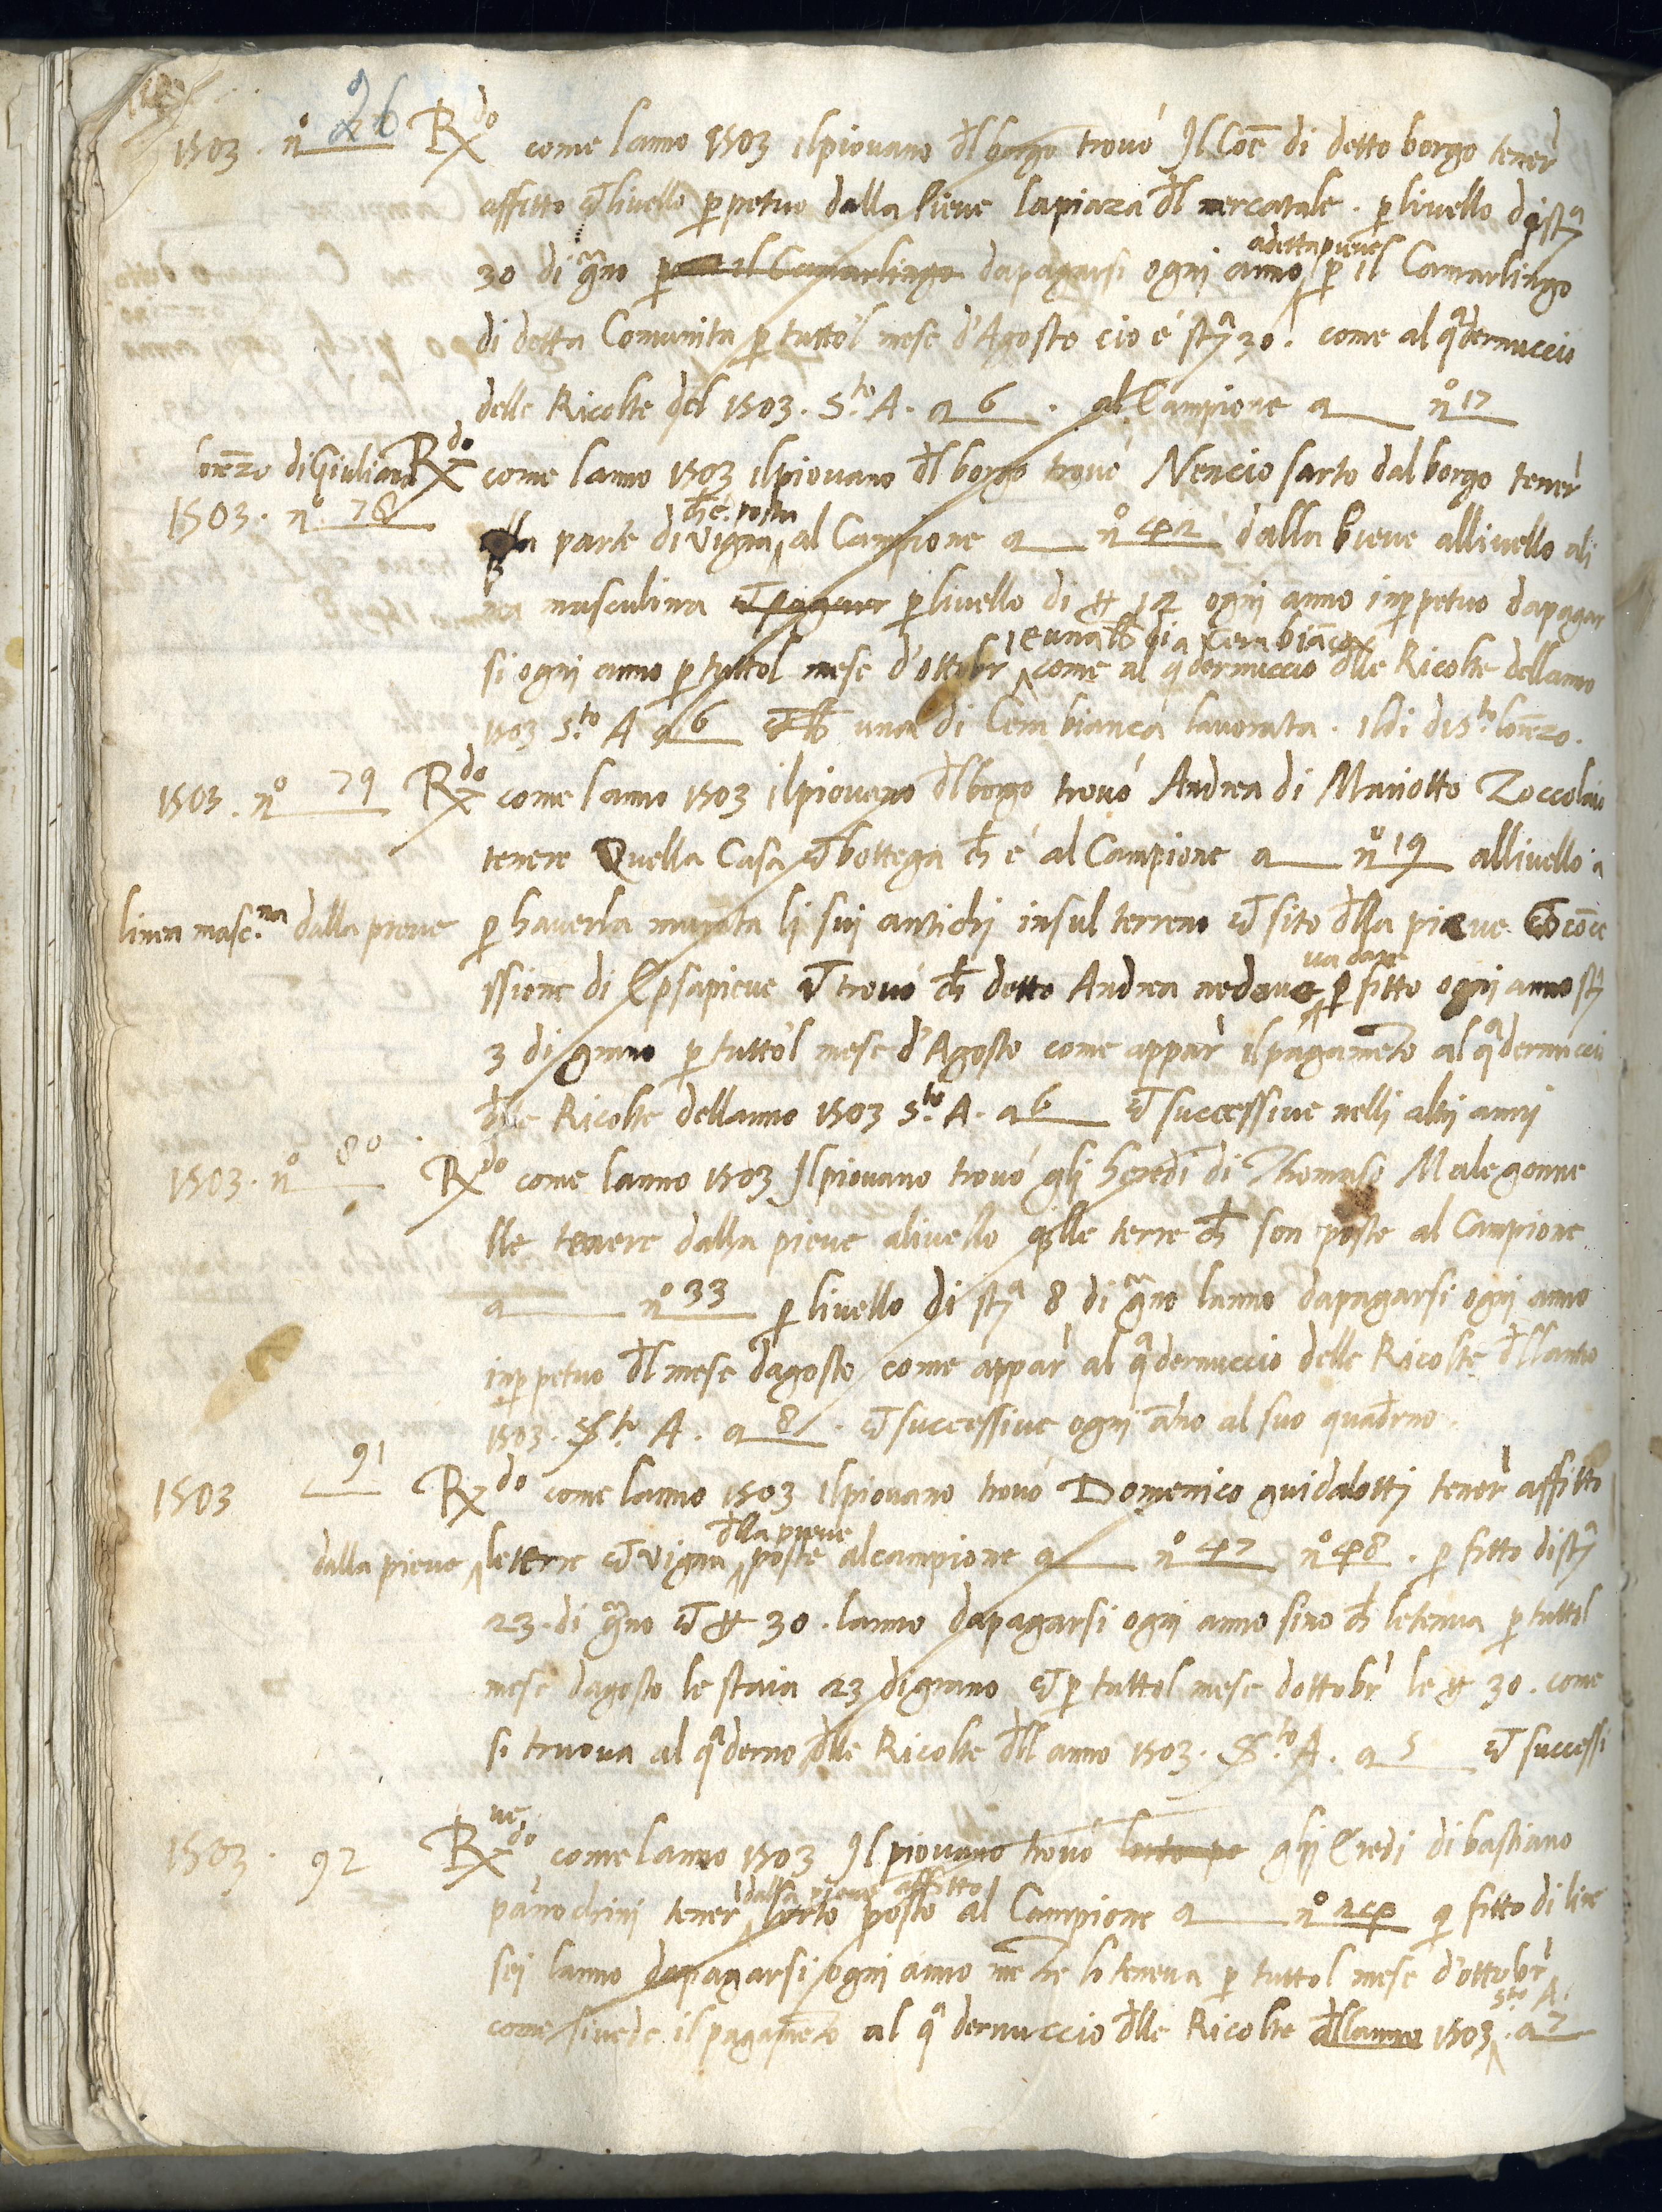 1503. nº 26 Rdo come lanno 1503 ilpiovano dl borgo trovò Il Coe di detto borgo tener
affitto et livello ppetuo dalla Pieve lapiaza dl mercatale. p livello di sta
adetta pieve
30 di grno p il Camarlingo dapagarsi ogni anno p il Camarlingo
di detta Comunita p tutto'l mese d'Agosto cio è sta 30. come al qdernuccio
delle Ricolte del 1503. Sto A. a 6. al Campione a nº 17
lorezo di Giuliano Rdo come lanno 1503 ilpiovano dl borgo trovò Nencio sarto dal borgo tener
1503. nº 78
ch'è posta
lla parte di vigna al Campione a nº 42 dalla Pieve allivello ali
nea masculina et pagare p livello di # 12 ogni anno inppetuo dapagar
e una lb di Cera biaca
si ogni anno p tuttol mese d'ottobr come al qdernuccio dlle Ricolte dellanno
1503 Sto A a 6 et lb una di Cera bianca lavorata. Il di di Sto lorezo.
1503. nº 79 Rdo come lanno 1503 ilpiovano dl borgo trovò Andrea di Mariotto Zoccolaio
tenere Quella Casa et bottega ch è al Campione a nº 19 allivello a
linea masc.na dalla pieve p haverla murata li sui antichi insul terreno et sito dlla pieve et coce
va dare
ssione di Epsa pieve et trovò ch detto Andrea ne dava p fitto ogni anno sta
3 di grano p tutto'l mese d'Agosto come appar il pagameto al qdernuccio
dlle Ricolte dellanno 1503 Sto A. a 6 et successive nelli altri anni
1503. nº 80 Rdo come lanno 1503 Ilpiovano trovò gli heredi di Thomaso Malegonne
lle tenere dalla pieve alivello qlle terre ch son poste al Campione
a nº 33 p livello di sta 8 di grno lanno dapagarsi ogni anno
inppetuo dl mese dagosto come appar al qdernuccio delle Ricolte dllanno
1503. Sto A. a 8. et successive ogni ano al suo quadrno.
1503 91 Rdo come lanno 1503 ilpiovano trovò Domenico guidalotti tener affitto
dlla pieve
dalla pieve le terre et vigna poste al campione a nº 47 nº 48. p fitto di sta
23. di grno et # 30. lanno dapagarsi ogni anno sino ch letenva p tuttol
mese dagosto le staia 23 di grano et p tuttol mese dottobr le # 30. come
si truova al qderno dlle Ricolte dll anno 1503. Sto A. a 5 et successi
ve
1503. 92 Rdo come lanno 1503 Ilpiovano trovò lorto po glj Eredi di bastiano
dalla pieve affitto
panochini tener lorto posto al Campione a nº 24 p fitto di lire
sei lanno dapagarsi ogni anno me tre lo teneva p tuttol mese d'ottobr
Sto A.
come si vede il pagameto al qdernuccio dlle Ricolte dllanno 1503. a 7